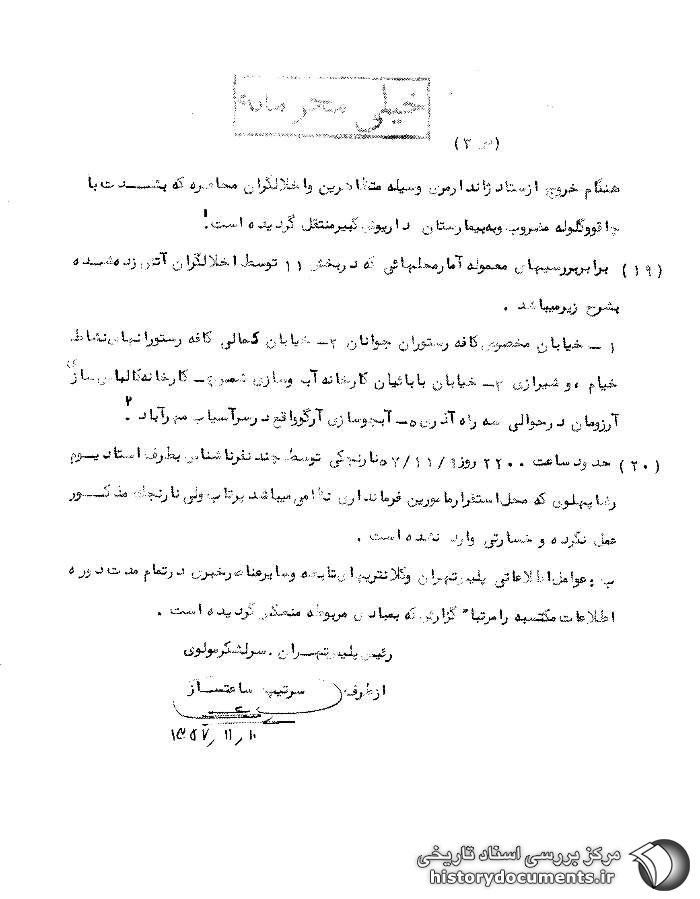 خیلی محرمانه
(ص ۳)
هنگام خروج از ستاد ژاندارمری وسیله متظاهرین و اخلالگران محاصره که بشدت با
چاقو و گلوله مضروب و به بیمارستان داریوش کبیر منتقل گردیده است.
(۱۹) برابر بررسیهای معموله آمار محلهائی که در بخش ۱۱ توسط اخلالگران آتش زده شده
بشرح زیر میباشد .
۱ - خیابان مخصوص کافه رستوران جوانان ۲- خیابان کمالی کافه رستورانهای نشاط
خیام ، و شیرازی ۳- خیابان بابائیان کارخانه آب و سازی شمس - کارخانه کالباس سازی
آرزومان در حوالی سه راه آذری ۵- آبجوسازی آرگو واقع در سرآسیاب مهرآباد .
(۲۰) حدود ساعت ۲۲۰۰ روز ۵۷/۱۱/۹ نارنجکی توسط چند نفر ناشناس بطرف استادیوم
رضا پهلوی که محل استقرار مامورین فرمانداری نظامی میباشد پرتاب ولی نارنجک مذکور
عمل نکرده و خسارتی وارد نشده است .
ب : عوامل اطلاعاتی پلیس تهران و کلانتریهای تابعه و سایر عناصر خبری در تمام مدت دوره
اطلاعات مکتسبه را مرتباً گزارش که بمبادی مربوطه منعکس گردیده است .
رئیس پلیس تهران . سرلشکر مولوی
از طرف سرتیپ ساعتساز
۱۳۵۷/۱۱/۱۰
مرکز بررسی اسناد تاریخی
historydocuments.ir